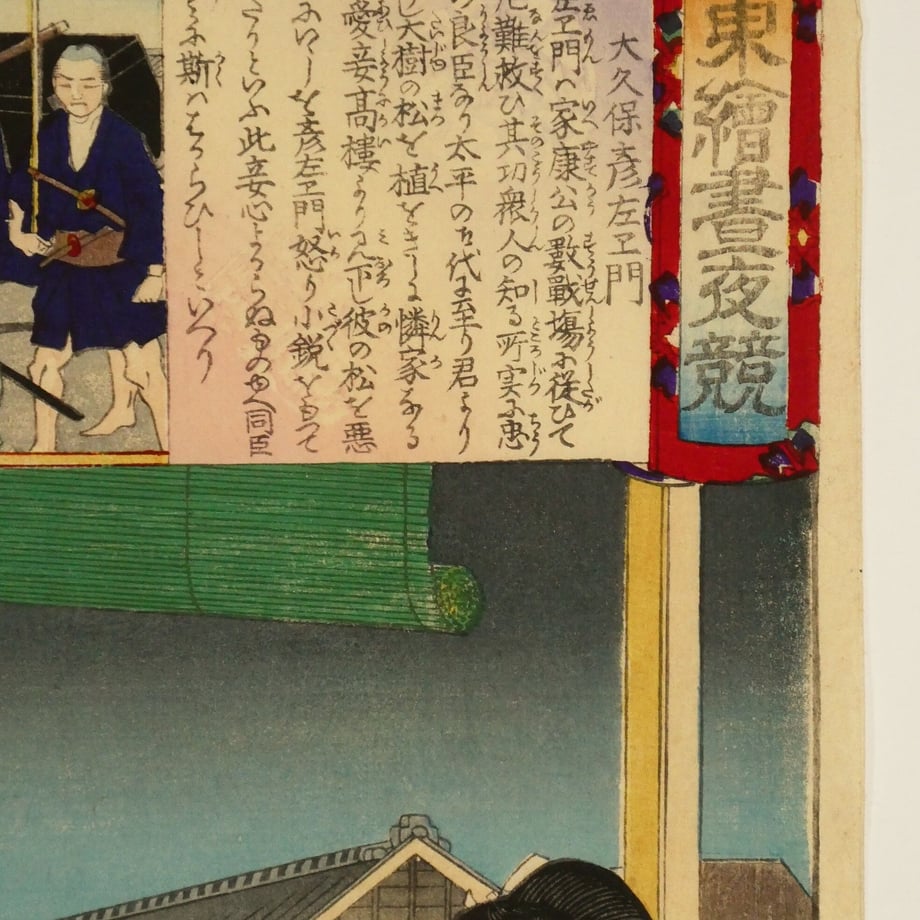 東繪晝夜競
大久保彦左ヱ門
左ヱ門ハ家康公の數戰塲に從ひて
危難救ひ其功衆人の知る所実に忠
の良臣なり太平の御代に至り君より
し大樹の松を植をきしに憐家なる
愛妾高樓より見下し彼の松を悪
にいしを彦左ヱ門怒り小鋭をもつて
たりといふ此妾心よからぬものゆへ同臣
に斯ハはからひしといへり